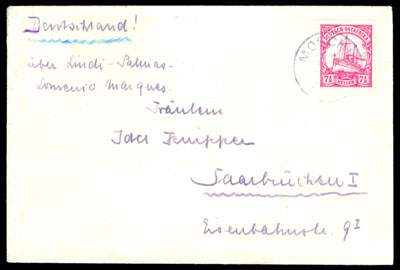 Deutschland!
über Lindi-Palmas-
Lourenço Marques.
Fräulein
Ida Knipper
Saarbrücken I
Eisenbahnstr. 9 I
DEUTSCH-OSTAFRIKA
7½ HELLER 7½
MO